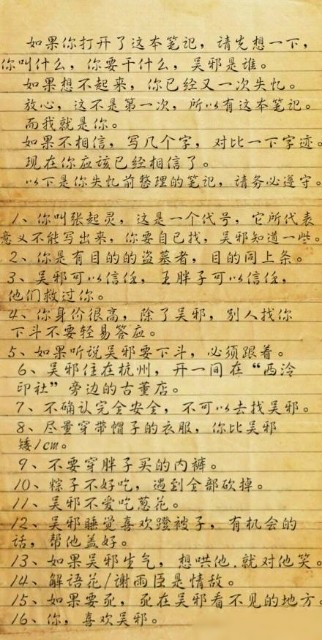 如果你打开了这本笔记，请先想一下，
你叫什么，你要干什么，吴邪是谁。
如果想不起来，你已经又一次失忆。
放心，这不是第一次，所以有这本笔记。
而我就是你。
如果不相信，写几个字，对比一下字迹。
现在你应该已经相信了。
以下是你失忆前整理的笔记，请务必遵守。
1、你叫张起灵，这是一个代号，它所代表
意义不能写出来，你要自己找，吴邪知道一些。
2、你是有目的的盗墓者，目的同上条。
3、吴邪可以信任，王胖子可以信任，
他们救过你。
4、你身价很高，除了吴邪，别人找你
下斗不要轻易答应。
5、如果听说吴邪要下斗，必须跟着。
6、吴邪住在杭州，开一间在“西泠
印社”旁边的古董店。
7、不确认完全安全，不可以去找吴邪。
8、尽量穿带帽子的衣服，你比吴邪
矮1cm。
9、不要穿胖子买的内裤。
10、粽子不好吃，遇到全部砍掉。
11、吴邪不爱吃葱花。
12、吴邪睡觉喜欢蹬被子，有机会的
话，帮他盖好。
13、如果吴邪生气，想哄他.就对他笑。
14、解语花/谢雨臣是情敌。
15、如果要死，死在吴邪看不见的地方。
16、你，喜欢吴邪。